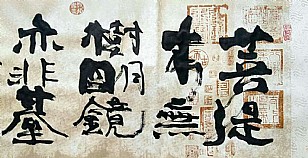 菩提
本無
樹明鏡
亦非臺